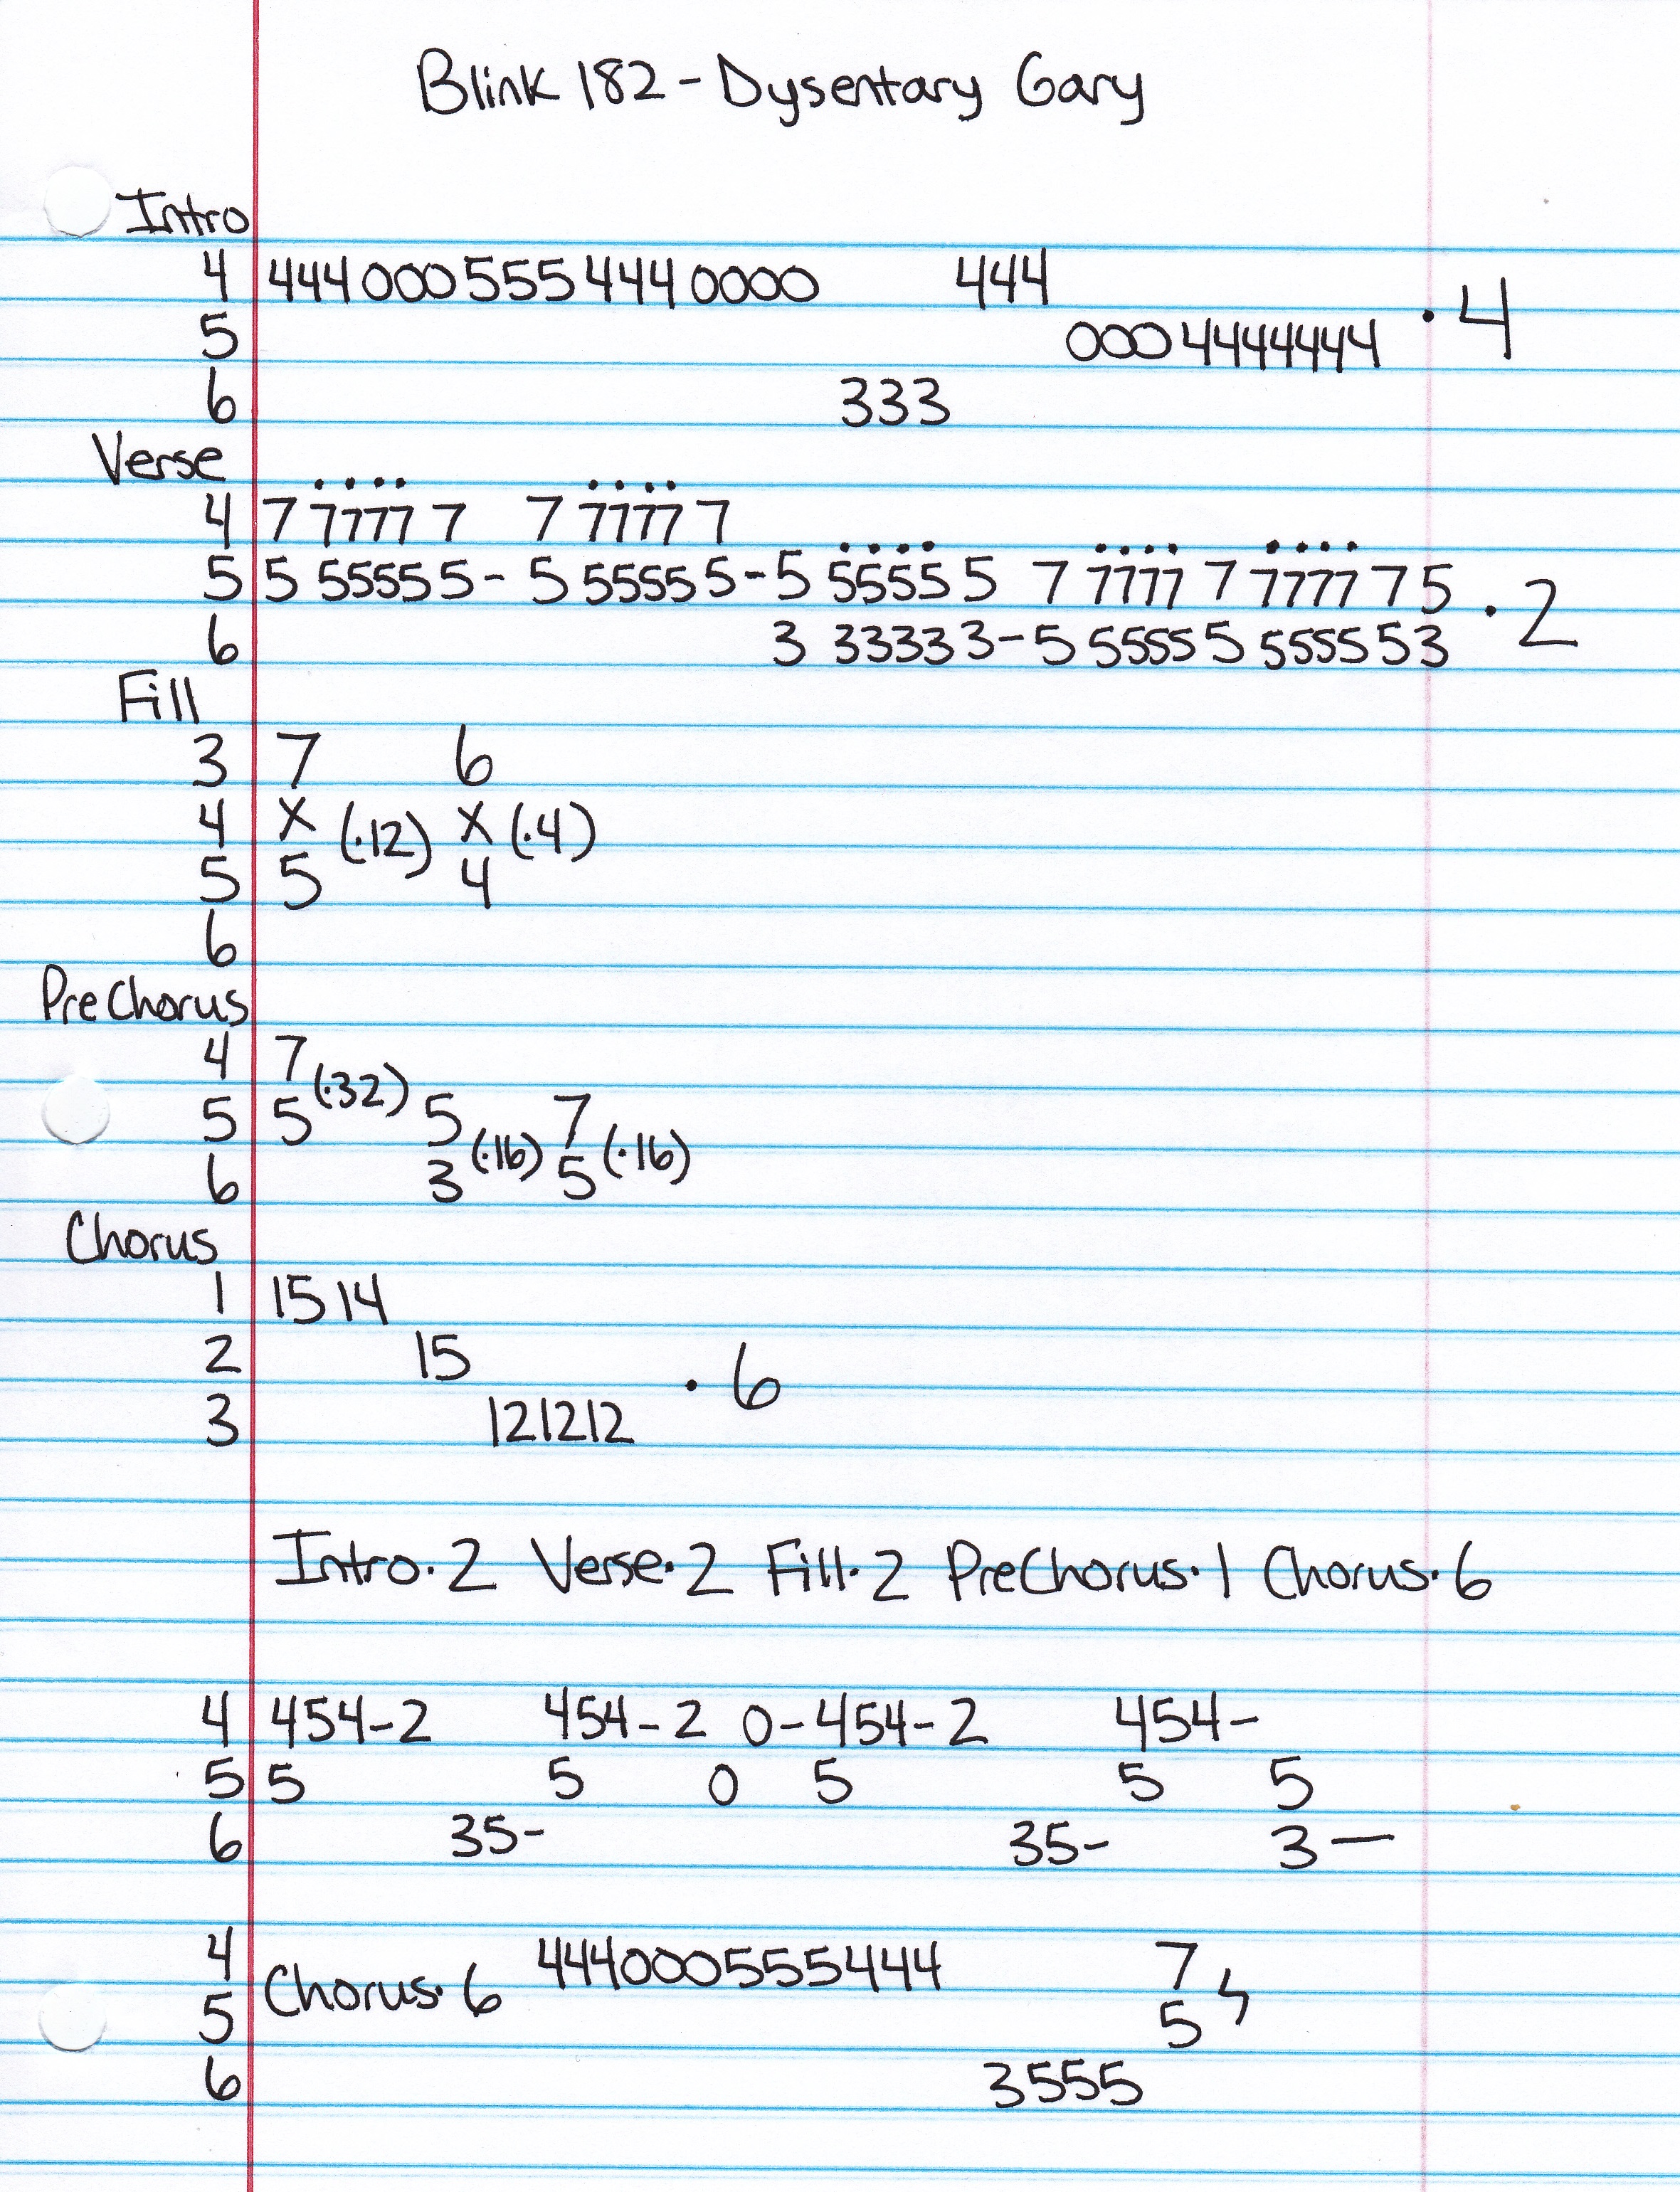 Blink 182 - Dysentary Gary
Intro
4 444 000 555 444 0000 444
5 000 4444444 · 4
6 333
Verse
4 7 7777 7 7 7777 7
5 5 5555 5 - 5 5555 5 - 5 5555 5 7 7777 7 7777 7 5 · 2
6 3 3333 3 - 5 5555 5 5555 5 3
Fill
3 7 6
4 x (·12) x (·4)
5 5 4
6
PreChorus
4 7 (·32)
5 5 5 7
6 3 (·16) 5 (·16)
Chorus
1 15 14
2 15 · 6
3 121212
Intro · 2 Verse · 2 Fill · 2 PreChorus · 1 Chorus · 6
4 454-2 454-2 0-454-2 454-
5 5 5 0 5 5 5
6 35- 35- 3 —
4 444000555444 7
5 Chorus · 6 5
6 3555